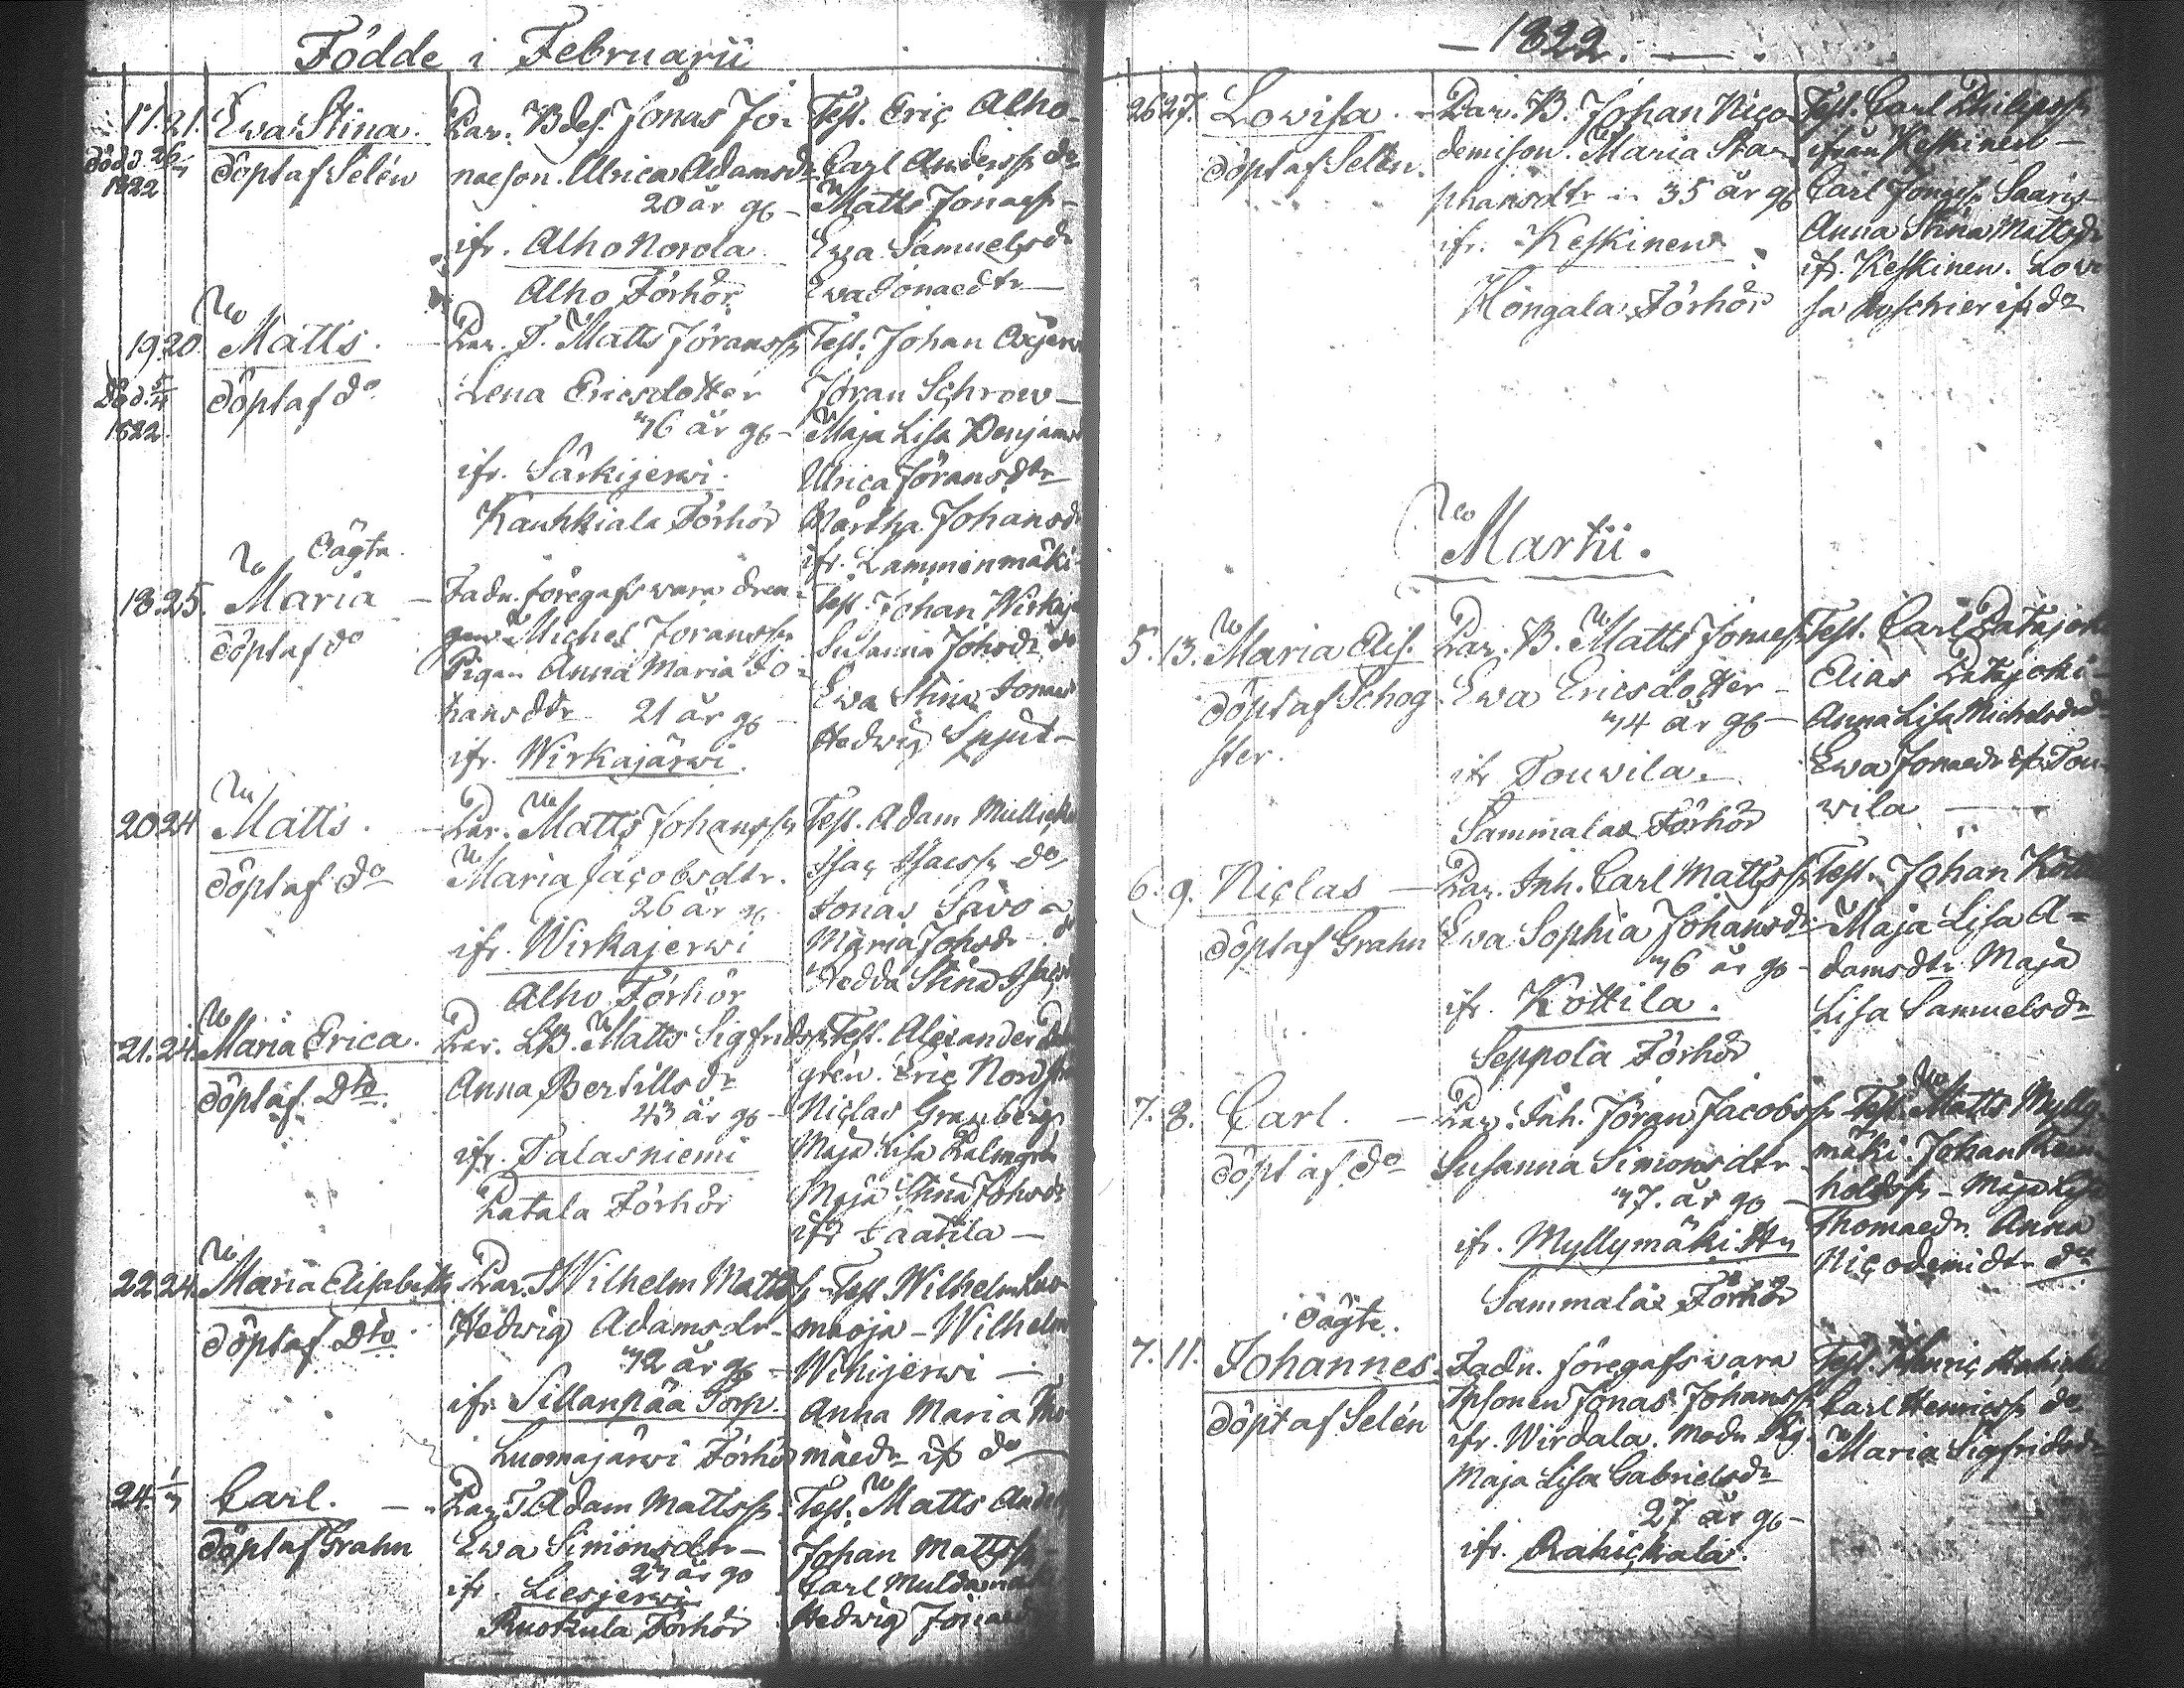 Födde i Februarii
17. 21. Ewa Stina.
död 26/
1822
döpt af Selén
Par. Bdes. Jonas Jo-
naeson. Ulrica Adamsdr
20 år gl -
ifr. Alho Norola
Alho Förhör
Test. Eric Alho
Carl Anderss. do
Matts Jonaess -
Ewa Samuelsdr
Ewa Jonaedtr -
19 20. Matts.
Död.
1822.
döpt af do
Par. T. Matts Jöranss
Lena Ericsdotter
46 år gl -
ifr. Särkijerwi.
Kauhkiala Förhör
Test. Johan
Jöran Schrow -
Maja Lisa Benjams
Ulrica Jöransdtr
Johansdr
ifr. Lamminmäki
Oägta.
18. 25. Maria -
döpt af do
Fadn. föregafs wara drän-
gen Michel Joranss
Pigan Anna Maria Jo-
hansdtr 21 år gl -
ifr. Wirkajärwi.
Test. Johan
Susanna Johsdr do
Ewa Stina Jonaed
Hedwig Spjut -
20 24 Matts.
döpt af do
Par. Matts Johanss
Maria Jacobsdtr.
26 år gl.
ifr. Wirkajerwi
Alho Förhör
Test. Adam
Isac Isacss do
Jonas Savo
Maria Johsdr -
Hedda Stina
21. 24. Maria Erica.
döpt af Dto.
Par. LB. Matts Sigfridss
Anna Bertillsdr
43 år gl -
ifr. Talasniemi
Latala Förhör
Test. Alexander
grén. Eric
Niclas Granberg
Maja Lisa
Maja Stina Johsdr
ifr Jaatila -
22 24. Maria Elisabeth
döpt af Dto.
Par. T Wilhelm Matts
Hedwig Adamsdr -
42 år gl -
ifr. Sillanpää Torp.
Luomajärwi Förhör
Test. Wilhelm Luo-
maoja - Wilhelm
Wihijerwi -
Anna Maria Tho-
maedr ifr do
24. 1/3 Carl. -
döpt af Grahn
Par. T Adam Mattss
Ewa Simonsdtr -
år gl
ifr. Liesjerwi
Ruokula Förhör
Test. Matts
Johan Mattss
Carl
Hedwig
- 1822. -
26 27. Lovisa. -
döpt af Selén.
Par. B. Johan Nico-
demison. Maria Sta-
phansdtr - 35 år gl
ifr. Keskinen
Höngala Förhör
Test. Carl Philipss
ifrån Keskinen -
Carl Jonaess Saaris
Anna Stina Mattsdr
ifr. Keskinen. Lovi
sa Roschier ifr do
Martii.
5. 13. Maria Elis.
döpt af Schog
ster.
Par. B. Matts Jonaess
Ewa Ericsdotter -
44 år gl -
ifr Touwila -
Sammala Förhör
Test. Carl Ratajoki
Elias Ratajoki -
Anna Lisa Michelsdr
Ewa Jonaedr ifr Tou-
wila -
6. 9. Niclas -
döpt af Grahn
Par. Inh. Carl Mattss
Ewa Sophia Johansdr
46 år gl -
ifr. Kottila.
Seppola Förhör
Test. Johan
Maja Lisa A=
damsdtr Maja
Lisa Samuelsdr
7. 8. Carl. -
döpt af do
Par. Inh. Jöran Jacobss
Susanna Simonsdtr
47. år gl -
ifr. Myllymäki Hn
Sammala Förhör
Test. Matts Mylly-
mäki. Johan Rein-
holdss - Maja Lisa
Thomaedr. Anna
Nicodemidtr do
Oägta.
7. 11. Johannes.
döpt af Selén
Fadn. föregafs wara
Tpsonen Jonas Johanss
ifr. Wirdala. Modn Pig.
Maja Lisa Gabrielsdr
27 år gl -
ifr. Rahickala.
Test. Henric
Carl Henricss do
Maria Sigfridsdr